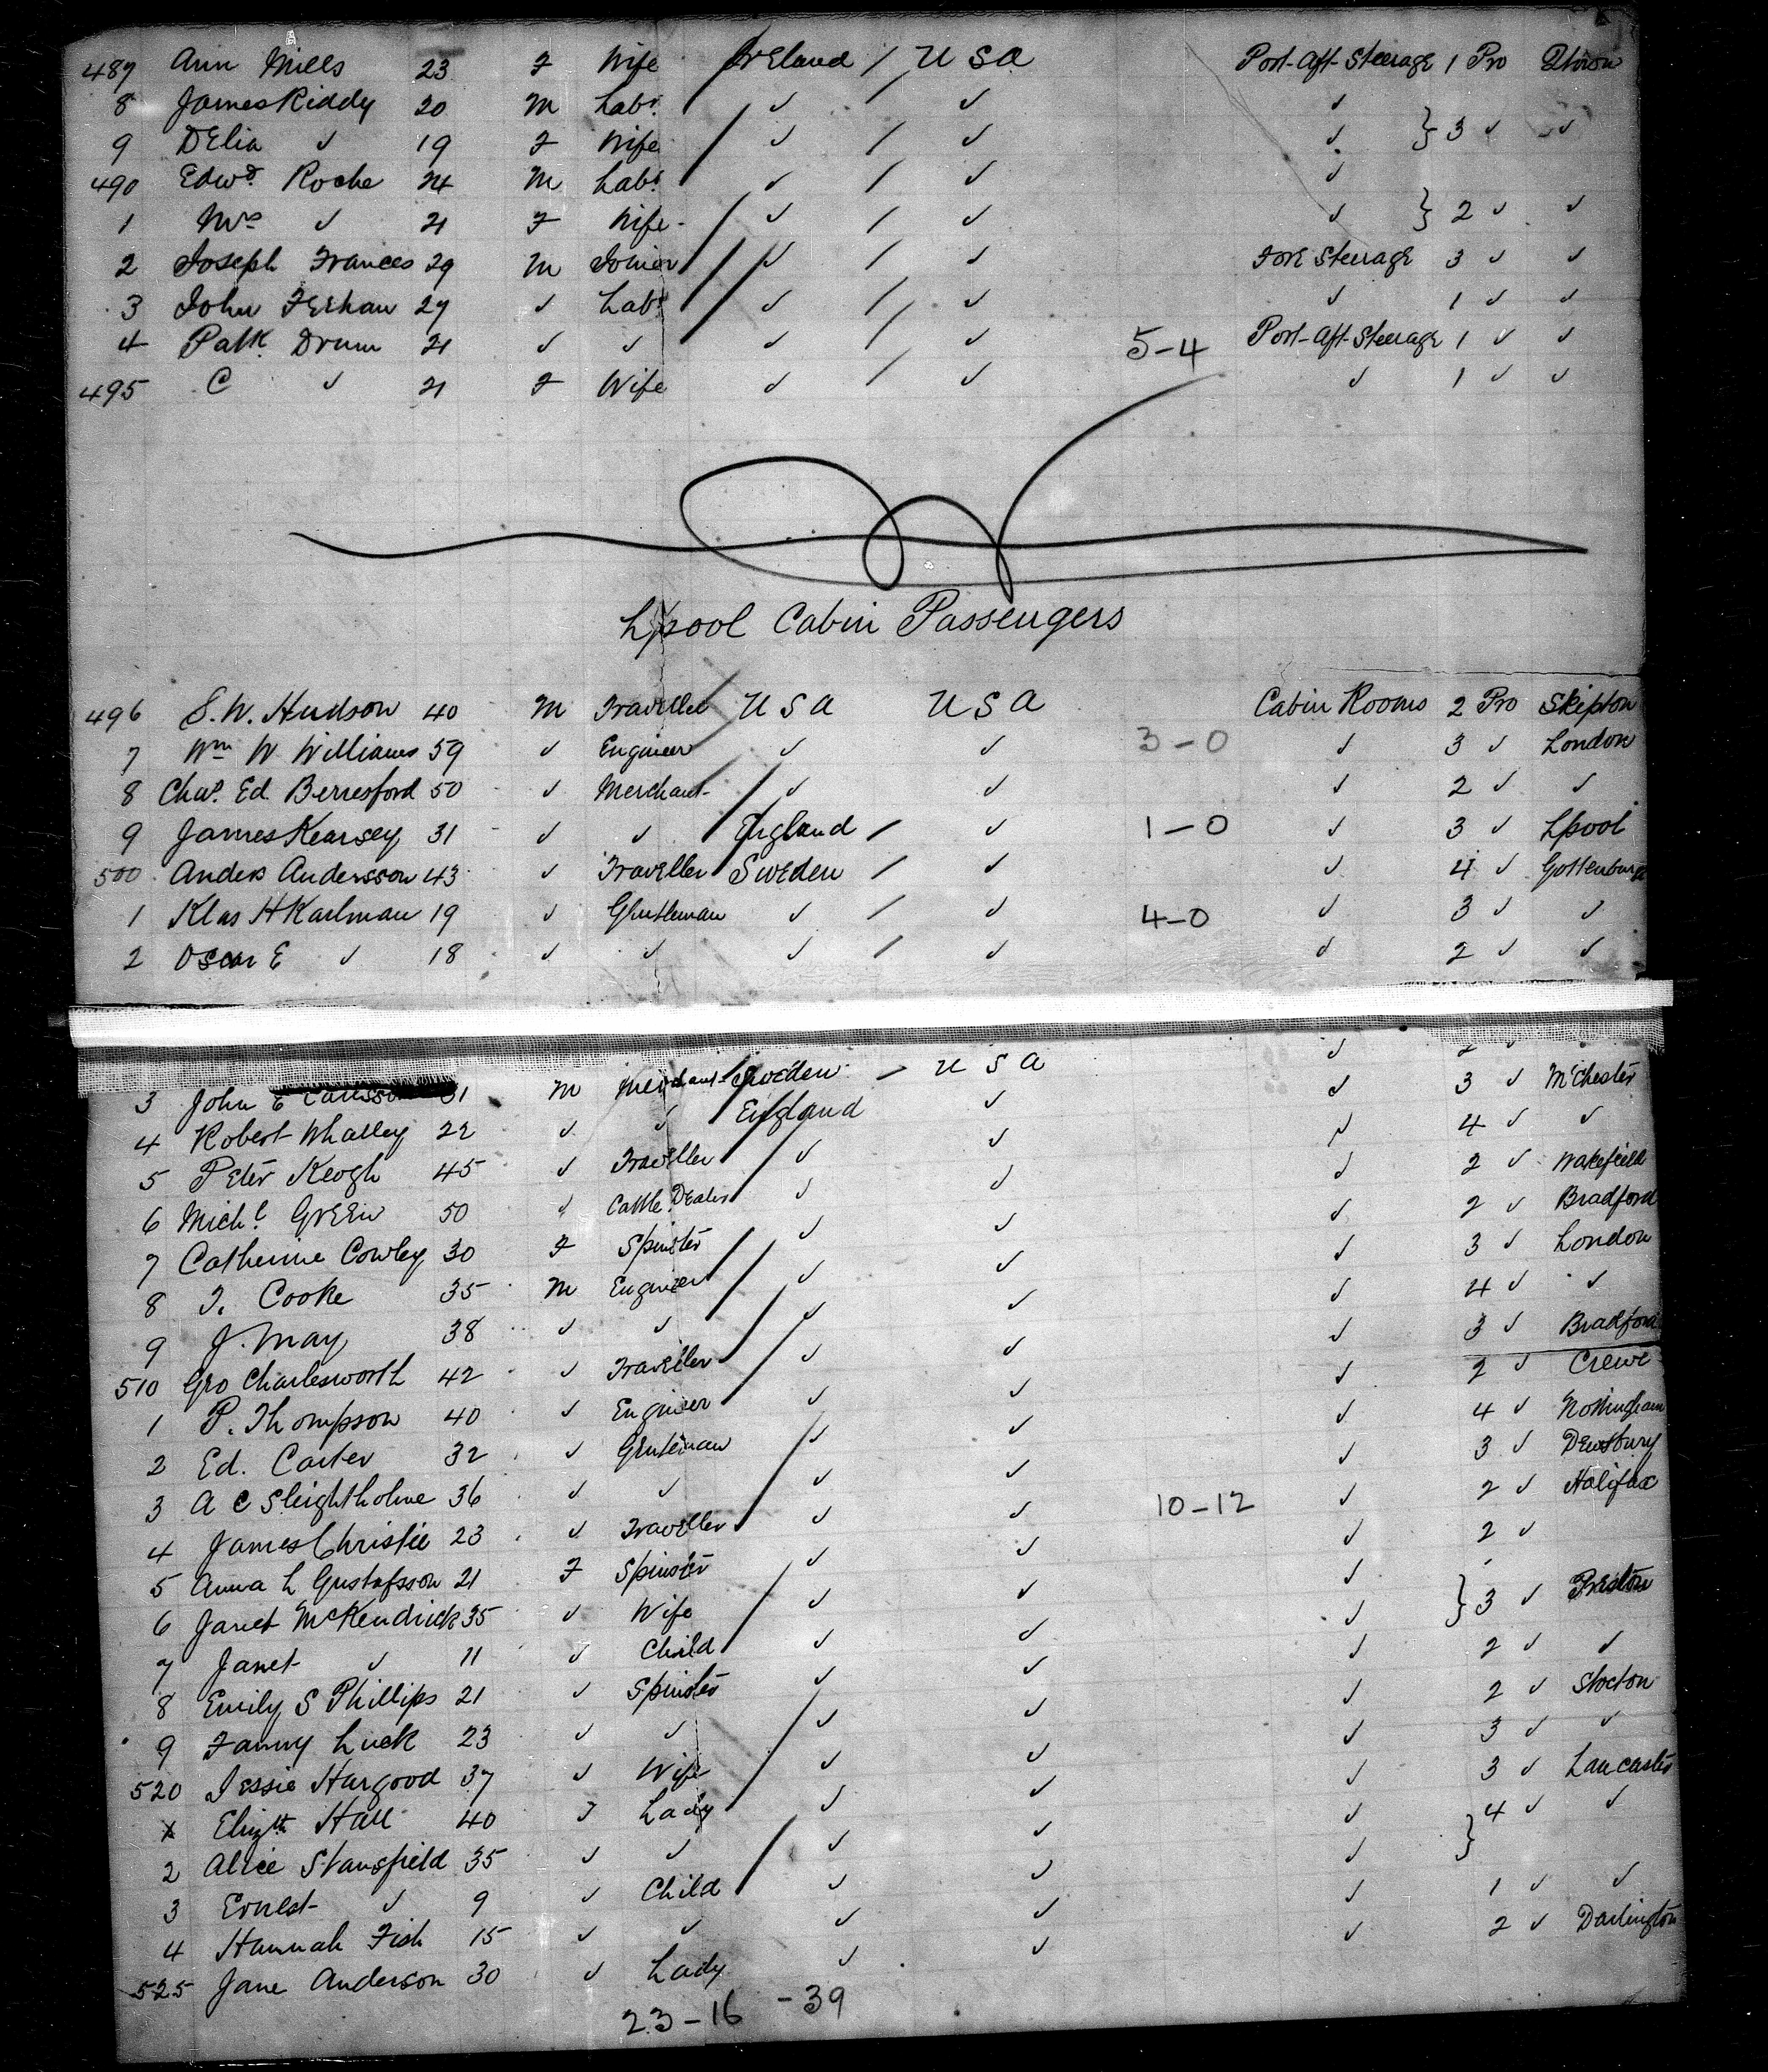 487 Ann Mills 23 F Wife Ireland / USA Port-Aft-Steerage 1 Pro
8 James Kiddy 20 M Labr. ✓ ✓ ✓
9 DElia ✓ 19 F Wife ✓ / ✓ ✓ } 3 ✓ ✓
490 Edwd. Roche 24 M Labr. ✓ / ✓ ✓
1 Mrs ✓ 21 F Wife - ✓ / ✓ ✓ } 2 ✓ ✓
2 Joseph Frances 29 M Joiner ✓ / ✓ ForE Steerage 3 ✓ ✓
3 John 27 ✓ Labr ✓ / ✓ ✓ 1 ✓ ✓
4 Patk. Drum 21 ✓ ✓ ✓ / ✓ 5-4 Port-Aft-Steerage 1 ✓ ✓
495 C ✓ 21 F Wife ✓ / ✓ ✓ 1 ✓ ✓
Lpool Cabin Passengers
496 S. W. Hudson 40 M Traveller USA USA Cabin Rooms 2 Pro Skipton
7 Wm W Williams 59 ✓ Engineer ✓ ✓ 3-0 ✓ 3 ✓ London
8 Chas. Ed Berresford 50 ✓ Merchant- ✓ ✓ ✓ 2 ✓ ✓
9 James Kearsey 31 ✓ ✓ England / ✓ 1-0 ✓ 3 ✓ Lpool
500 Anders Andersson 43 ✓ Traveller Sweden / ✓ ✓ 4 ✓ Gottenburg
1 Klas H Karlman 19 ✓ Gentleman ✓ / ✓ 4-0 ✓ 3 ✓ ✓
2 Oscar E ✓ 18 ✓ ✓ ✓ / ✓ ✓ 2 ✓ ✓
3 John E Carlsson 31 M Merchant- Sweden / USA ✓ 2 ✓
4 Robert Whalley 22 ✓ ✓ England ✓ ✓ 3 ✓ M'Chester
5 Peter Keogh 45 ✓ Traveller ✓ ✓ ✓ 4 ✓ ✓
6 Michl. GrEEn 50 ✓ Cattle Dealer ✓ ✓ ✓ 2 ✓ Wakefield
7 Catherine Cowley 30 F Spinster ✓ ✓ ✓ 2 ✓ Bradford
8 T. Cooke 35 M Engineer ✓ ✓ ✓ 3 ✓ London
9 J. May 38 ✓ ✓ ✓ ✓ ✓ 4 ✓ ✓
510 Geo Charlesworth 42 ✓ Traveller ✓ ✓ ✓ 3 ✓ Bradford
1 P. Thompson 40 ✓ Engineer ✓ ✓ ✓ 2 ✓ Crewe
2 Ed. Carter 32 ✓ Gentleman ✓ ✓ ✓ 4 ✓ Nottingham
3 A C Sleightholme 36 ✓ ✓ ✓ ✓ ✓ 3 ✓ Dewsbury
4 James Christie 23 ✓ Traveller ✓ ✓ 10-12 ✓ 2 ✓ Halifax
5 Anna L Gustafsson 21 F Spinster ✓ ✓ ✓ 2 ✓
6 Janet McKendrick 35 ✓ Wife ✓ ✓ ✓
7 Janet ✓ 11 ✓ Child ✓ ✓ ✓ } 3 ✓ Preston
8 Emily S Phillips 21 ✓ Spinster ✓ ✓ ✓ 2 ✓ ✓
9 Fanny Luck 23 ✓ ✓ ✓ ✓ ✓ 2 ✓ Stocton
520 Jessie Hargood 37 ✓ Wife ✓ ✓ ✓ 3 ✓ ✓
Elizth Hall 40 F Lady ✓ ✓ ✓ 3 ✓ Lancaster
2 Alice Stansfield 35 ✓ ✓ ✓ ✓ ✓ 4 ✓ ✓
3 Ernest- ✓ 9 ✓ Child ✓ ✓ ✓ }
4 Hannah Fish 15 ✓ ✓ ✓ ✓ ✓ 1 ✓ ✓
525 Jane Anderson 30 ✓ Lady ✓ ✓ ✓ 2 ✓ Darlington
23-16 -39